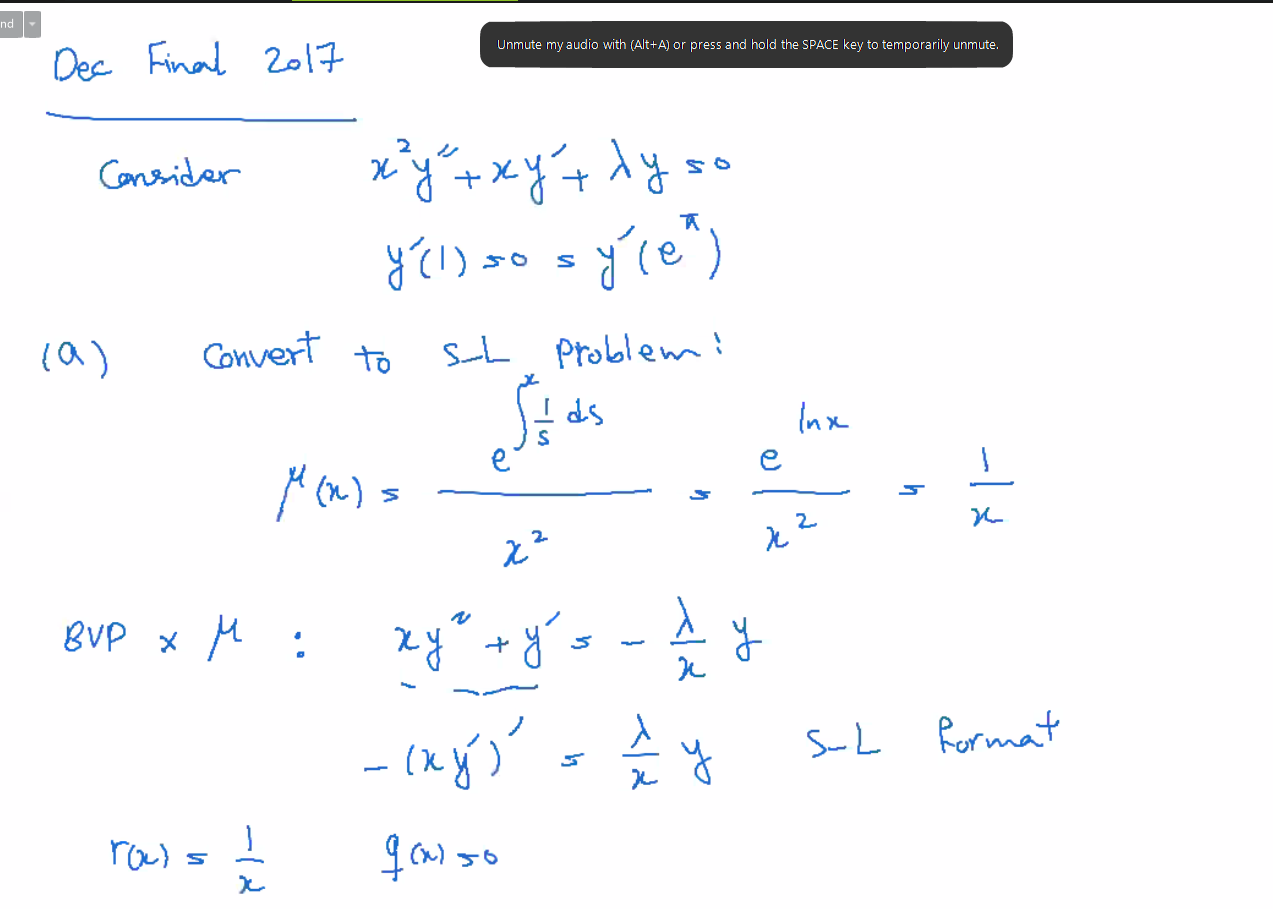 nd
Unmute my audio with (Alt+A) or press and hold the SPACE key to temporarily unmute.
Dec Final 2017
Consider x²y″ + xy′ + λy = 0
y′(1) = 0 = y′(e^π)
(a) Convert to S-L problem:
μ(x) = e^{∫^x 1/s ds} / x² = e^{ln x} / x² = 1/x
BVP × μ : xy″ + y′ = - λ/x y
-(xy′)′ = λ/x y S-L format
r(x) = 1/x q(x) = 0